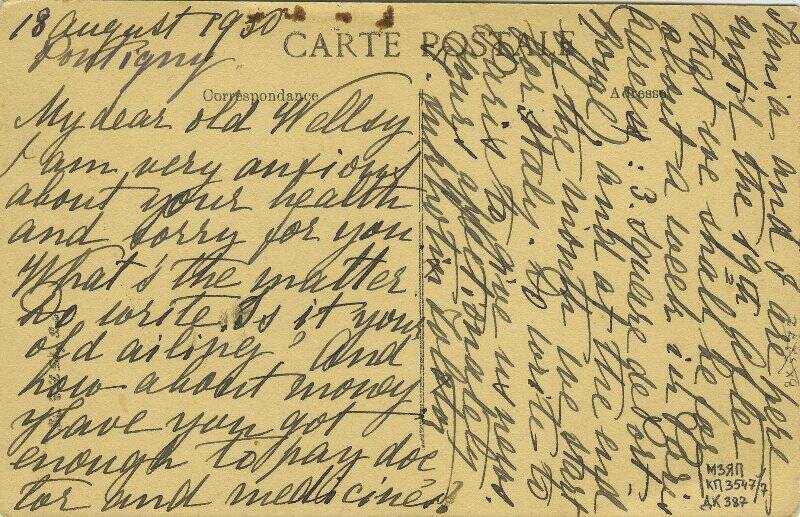 18 August 1930
Pontigny
CARTE POSTALE
Correspondance
Adresse
My dear old Wellsy
I am very anxious
about your health
and sorry for you
What's the matter
do write. Is it your
old ailing? And
how about money
Have you got
enough to pay doc
tor and medicines?
and I are here
until the 19th after
that we shall be for
about a week in Paris
address: 3. square de Port
Royal) and at the end
of the month we start
for Italy. Do write to
Paris to give us news.
Yours affectionately
МЗЯП
КП3547/7
ДК 387